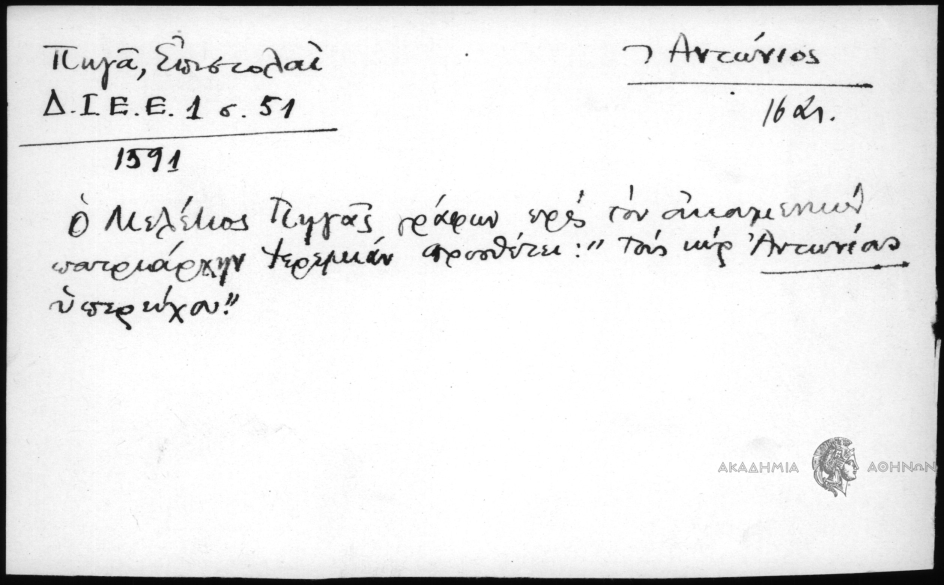 Πηγᾶ, Ἐπιστολαὶ
Δ.Ι.Ε.Ε. 1 σ. 51
1591
Ἀντώνιος
16
Ὁ Μελέτιος Πηγᾶς γράφων πρὸς τὸν οἰκουμενικὸν
πατριάρχην Ἱερεμίαν προσθέτει: " τοὺς κὺρ Ἀντωνίους
ὑπερεύχου."
ΑΚΑΔΗΜΙΑ ΑΘΗΝΩΝ